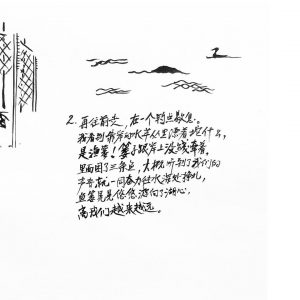 2. 再往前走，在一个钓点歇息。
我看到前岸的水草丛里漂着堆什么，
是渔篓！篓子跟岸上没线牵着。
里面困了三条鱼，大概听到了我们的
声音就一同奋力往水深处挣扎，
鱼篓晃晃悠悠游向了湖心，
离我们越来越远。